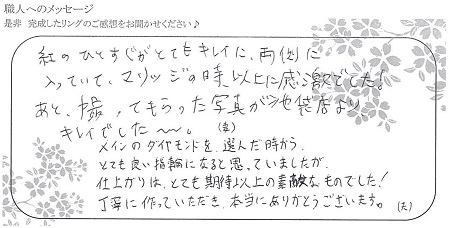 職人へのメッセージ
是非 完成したリングのご感想をお聞かせください♪
紅のひとすじがとてもキレイに、両側に
入っていて、マリッジの時以上に感激でした!
あと、撮ってもらった写真が池袋店より
キレイでした〜。(ま)
メインのダイヤモンドを選んだ時から、
とても良い指輪になると思っていましたが、
仕上がりは、とても期待以上の素敵なものでした!
丁寧に作っていただき、本当にありがとうございます。(た)